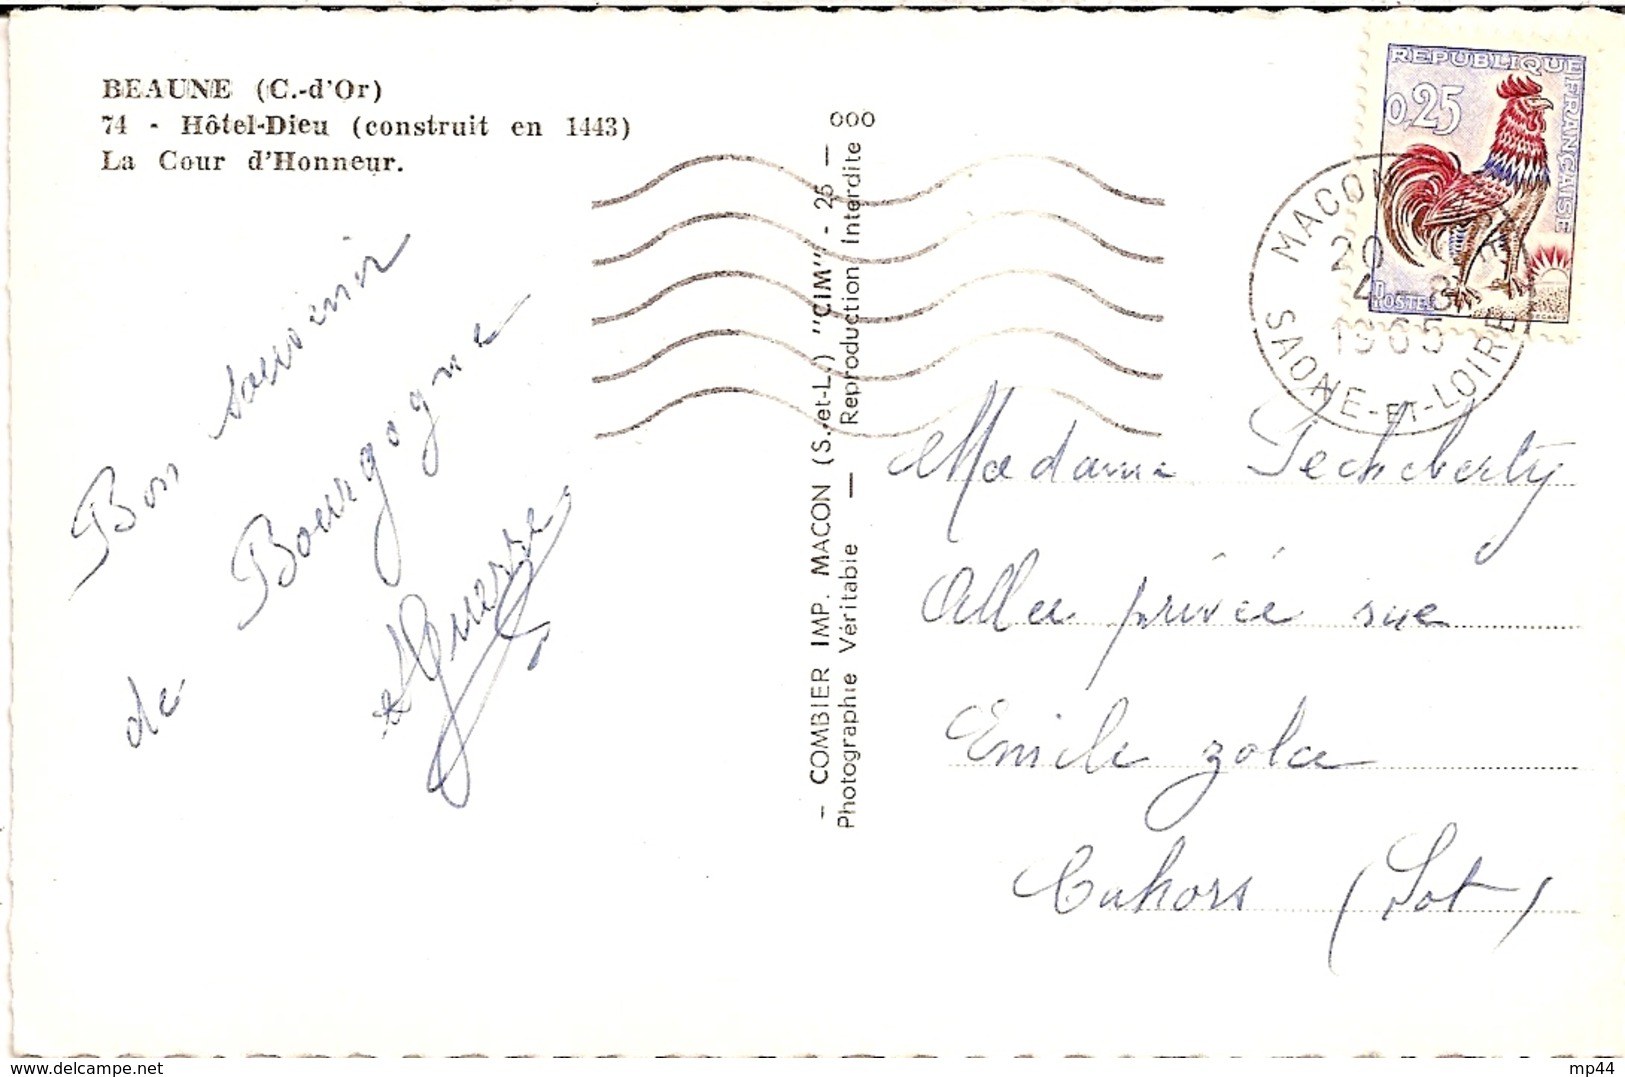 BEAUNE (C.-d'Or)
74 - Hôtel-Dieu (construit en 1443)
La Cour d'Honneur.
Bon souvenir
de Bourgogne
000
- COMBIER IMP. MACON (S.-et-L.) "CIM" - 25 -
Photographie Véritable — Reproduction Interdite
REPUBLIQUE FRANÇAISE
0,25
POSTES
MACON
20
4 - 8
1965
SAONE-ET-LOIRE
Madame
Allée privée rue
Emile Zola
Cahors (Lot)
www.delcampe.net
mp44